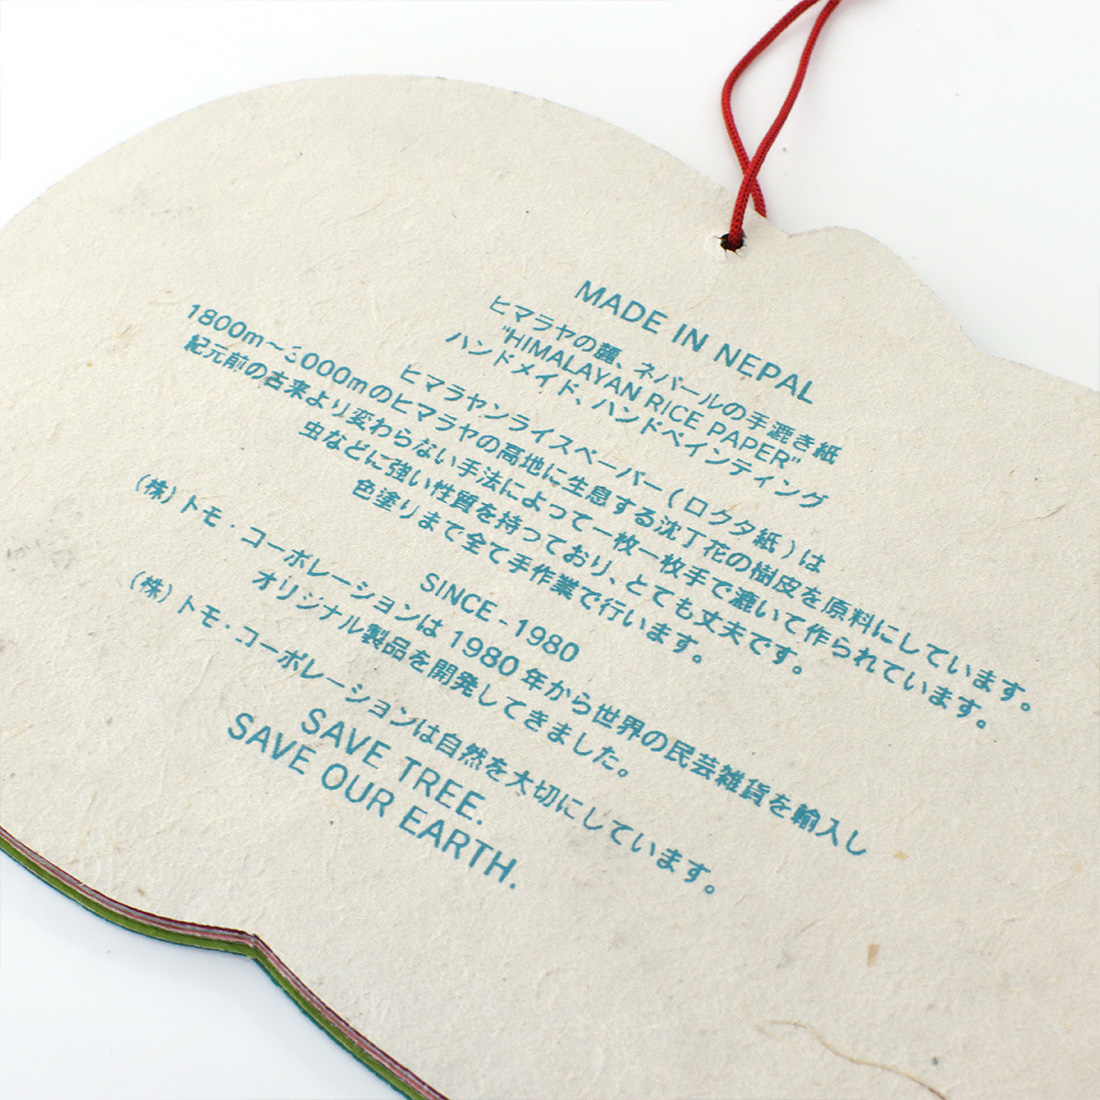 MADE IN NEPAL
ヒマラヤの麓、ネパールの手漉き紙
"HIMALAYAN RICE PAPER"
ハンドメイド、ハンドペインティング
ヒマラヤンライスペーパー(ロクタ紙)は
1800m〜3000mのヒマラヤの高地に生息する沈丁花の樹皮を原料にしています。
紀元前の古来より変わらない手法によって一枚一枚手で漉いて作られています。
虫などに強い性質を持っており、とても丈夫です。
色塗りまで全て手作業で行います。
SINCE-1980
(株)トモ・コーポレーションは1980年から世界の民芸雑貨を輸入し
オリジナル製品を開発してきました。
(株)トモ・コーポレーションは自然を大切にしています。
SAVE TREE.
SAVE OUR EARTH.